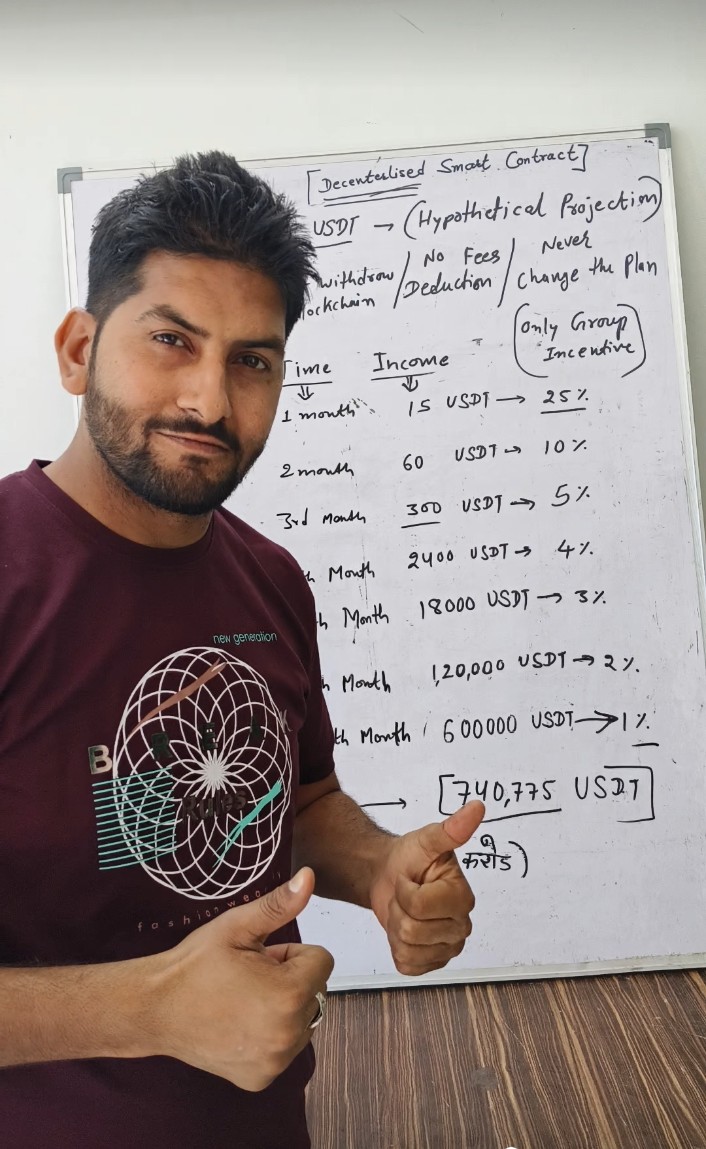 [Decenterlised Smart Contract]
USDT → (Hypothetical Projection)
withdraw / No Fees / Never
lockchain Deduction Change the Plan
(Only Group
Incentive)
Time Income
1 month 15 USDT → 25%
2 month 60 USDT → 10%
3rd Month 300 USDT → 5%
h Month 2400 USDT → 4%
h Month 18000 USDT → 3%
h Month 1,20,000 USDT → 2%
th Month 600000 USDT → 1%
→ [740,775 USDT]
करोड)
new generation
BREAK
Rules
fashion wear